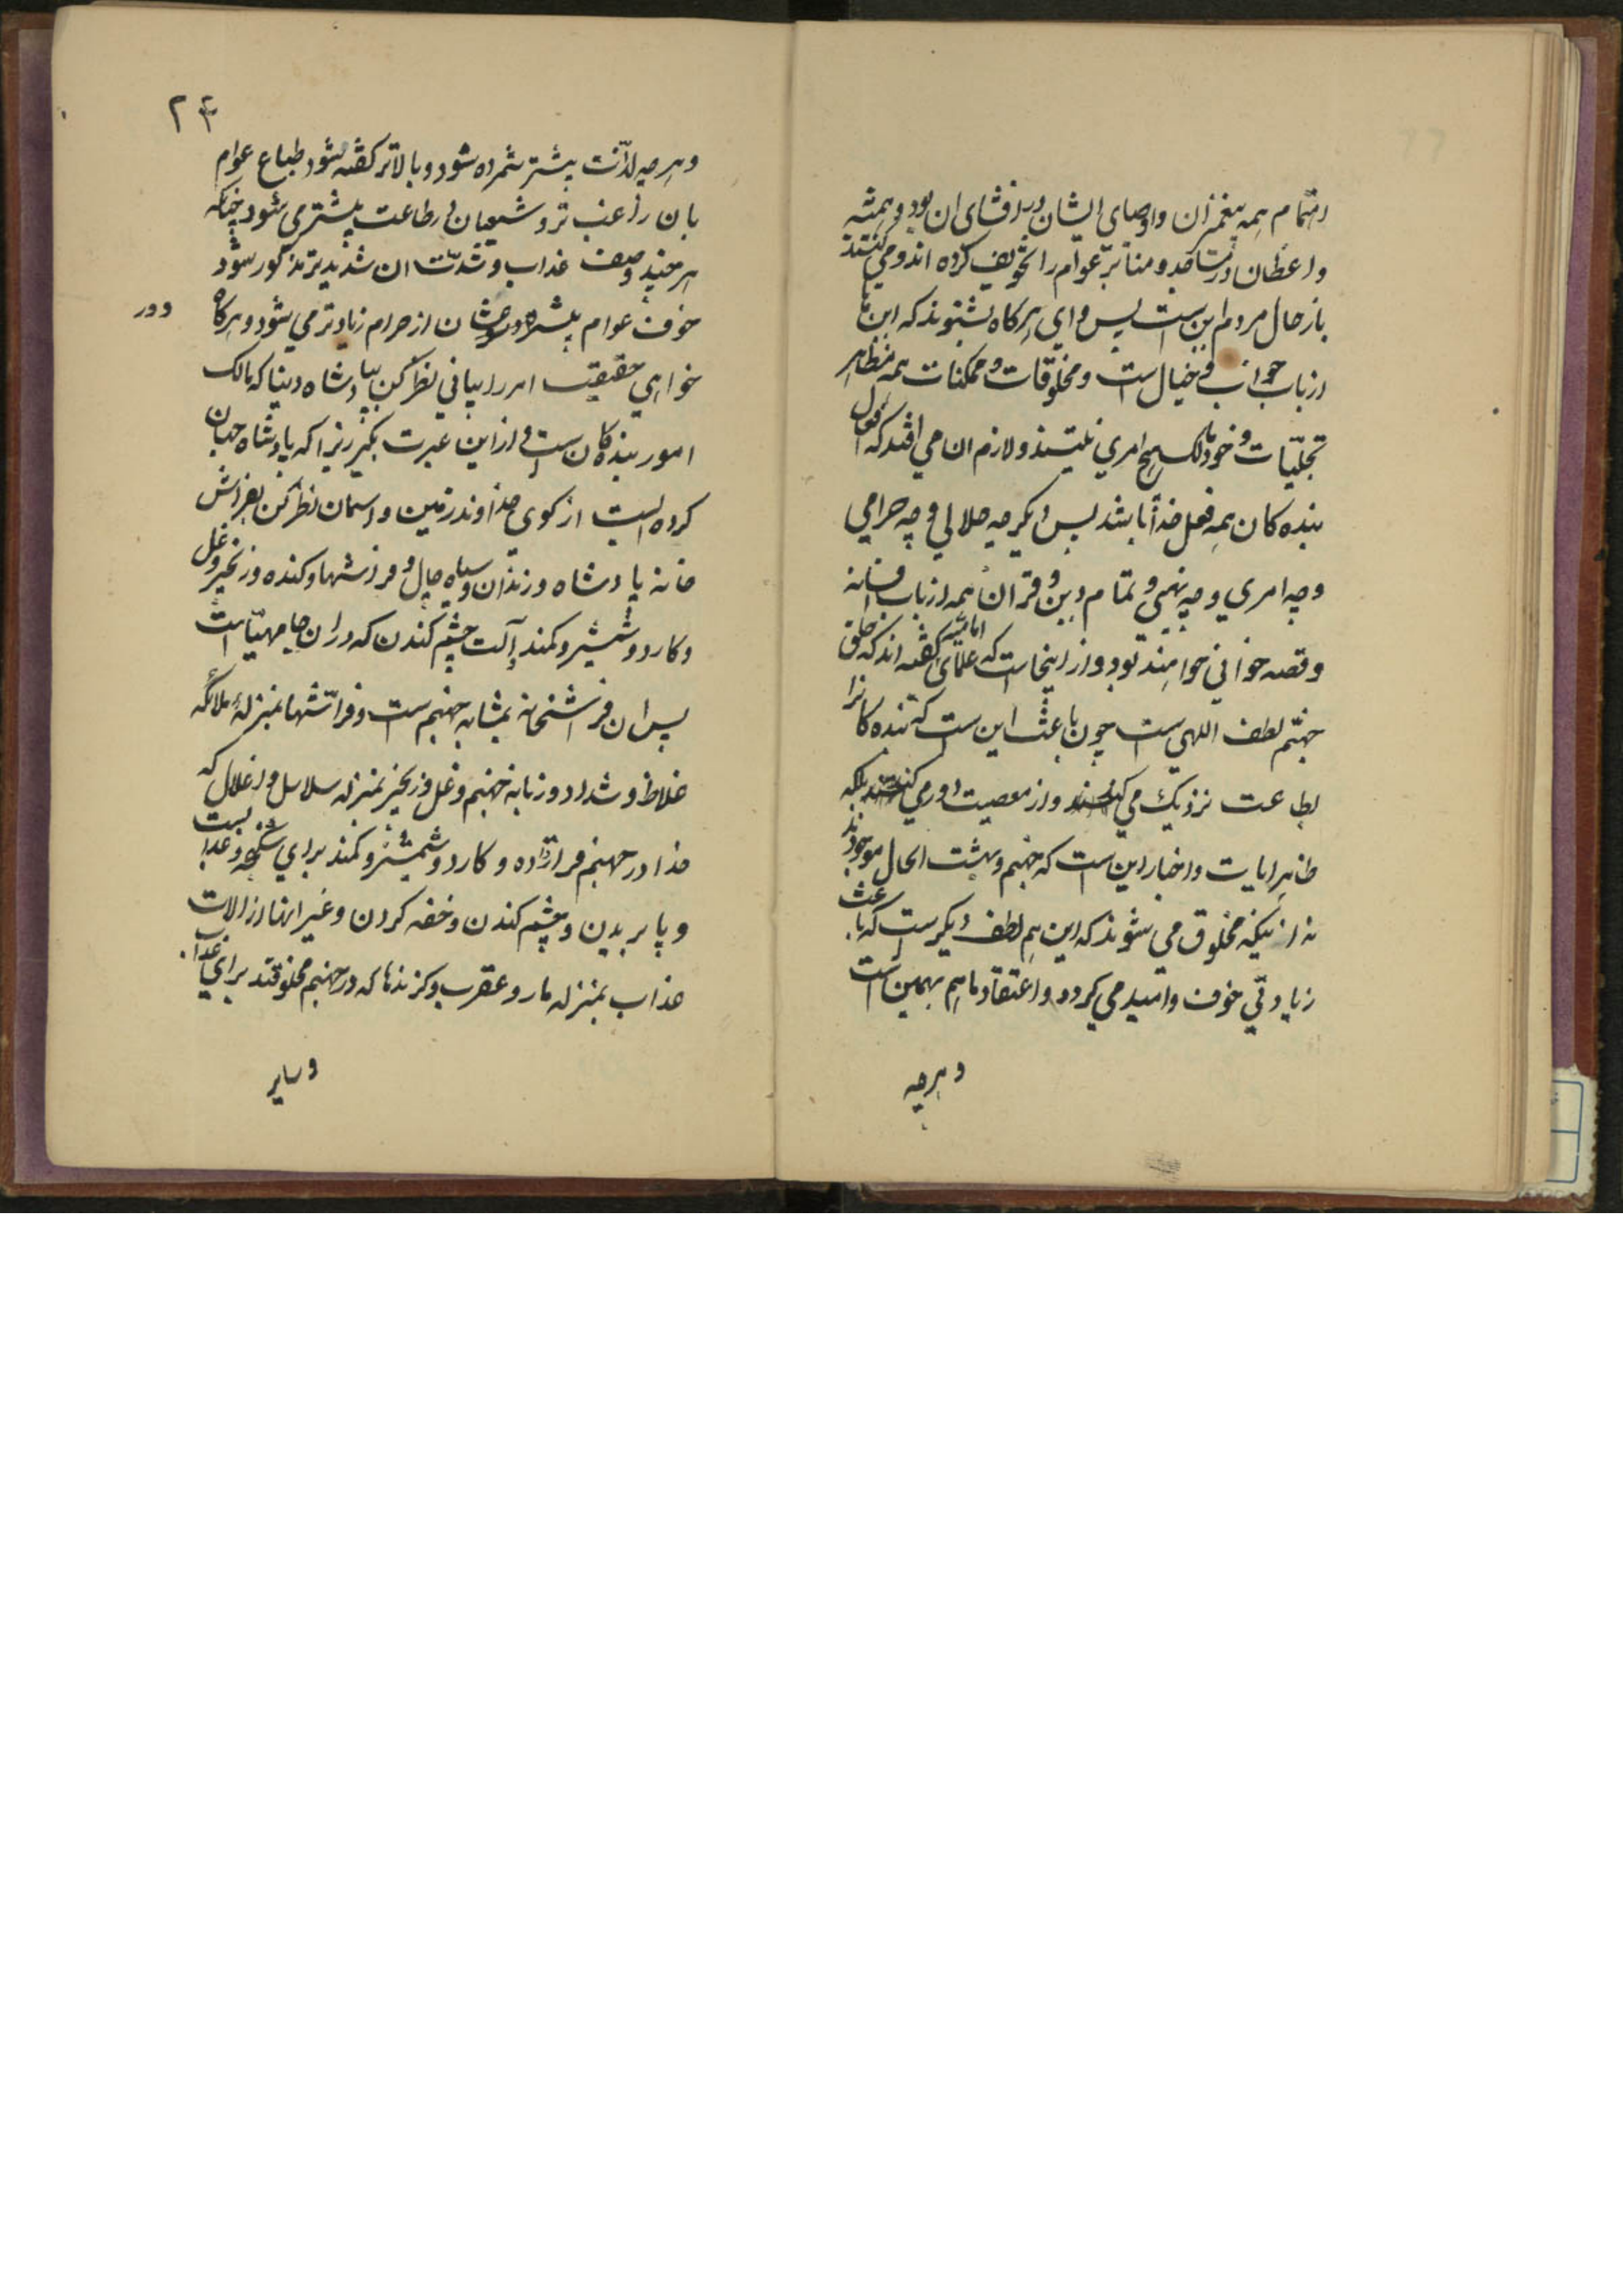 اهتمام همه پیغمبران و اوصیای ایشان در افشای ان بود و همیشه
واعظان در مساجد و منابر عوام را تخویف کرده اند و می کنند
باز حال مردم این ست پس وای هرکاه بشنوند که اینها
از باب خواب و خیال است و مخلوقات و ممکنات همه مظاهر
تجلیّات و خود مالک هیچ امری نیستند و لازم ان می افتد که افعال
بنده کان همه فعل خدا باشد پس دیکر چه حلالی و چه حرامی
و چه امری و چه نهیی و تمام دین و قران همه از باب افسانه
و قصه خوانی خواهند بود و از اینجاست که علمای امامیه کفته اند که خلق
جهنّم لطف اللهی ست چون باعث این ست که بنده کانرا
بطاعت نزدیک می کند و از معصیت دور می کند بلکه
ظاهر ایات و اخبار این است که جهنم و بهشت الحال موجودند
نه اینکه مخلوق می شوند که این هم لطف دیکر ست که باعث
زیادتی خوف و امید می کردد و اعتقاد ما هم بهمین است
و هرچه
۲۴
و هرچه لذّت بیشتر شمرده شود و بالاتر کفته شود طباع عوام
بان راغب تر و سعیشان در طاعت بیشتر می شود چنانکه
هر چند وصف عذاب و شدّت ان شدیدتر مذکور شود
خوف عوام بیشتر و دوریشان از حرام زیادتر می شود و هرکاه
دور
خواهی حقیقت امر را بیانی نظر کن بپادشاه دنیا که مالک
امور بنده کان ست و از این عبرت بکیر زیرا که پادشاه جهان
کرده ایست از کوی خداوند زمین و اسمان نظر کن بفراش
خانه پادشاه و زندان و سیاه چال و فراشها و کنده و زنجیر و غل
و کارد و شمشیر و کمند و آلت چشم کندن که در ان جا مهیّا است
پس ان فراشخانه بمثابه جهنم ست و فراشها بمنزلهٔ ملائکه
غلاظ و شداد و زبانه جهنم و غل و زنجیر بمنزله سلاسل و اغلال که
خدا در جهنم قرار داده و کارد و شمشیر و کمند برای شکنجه و عذاب
و پا بریدن و چشم کندن و خفه کردن و غیر اینها از الات
عذاب بمنزله مار و عقرب و کزندها که در جهنم مخلوقند برای عذاب
و سایر